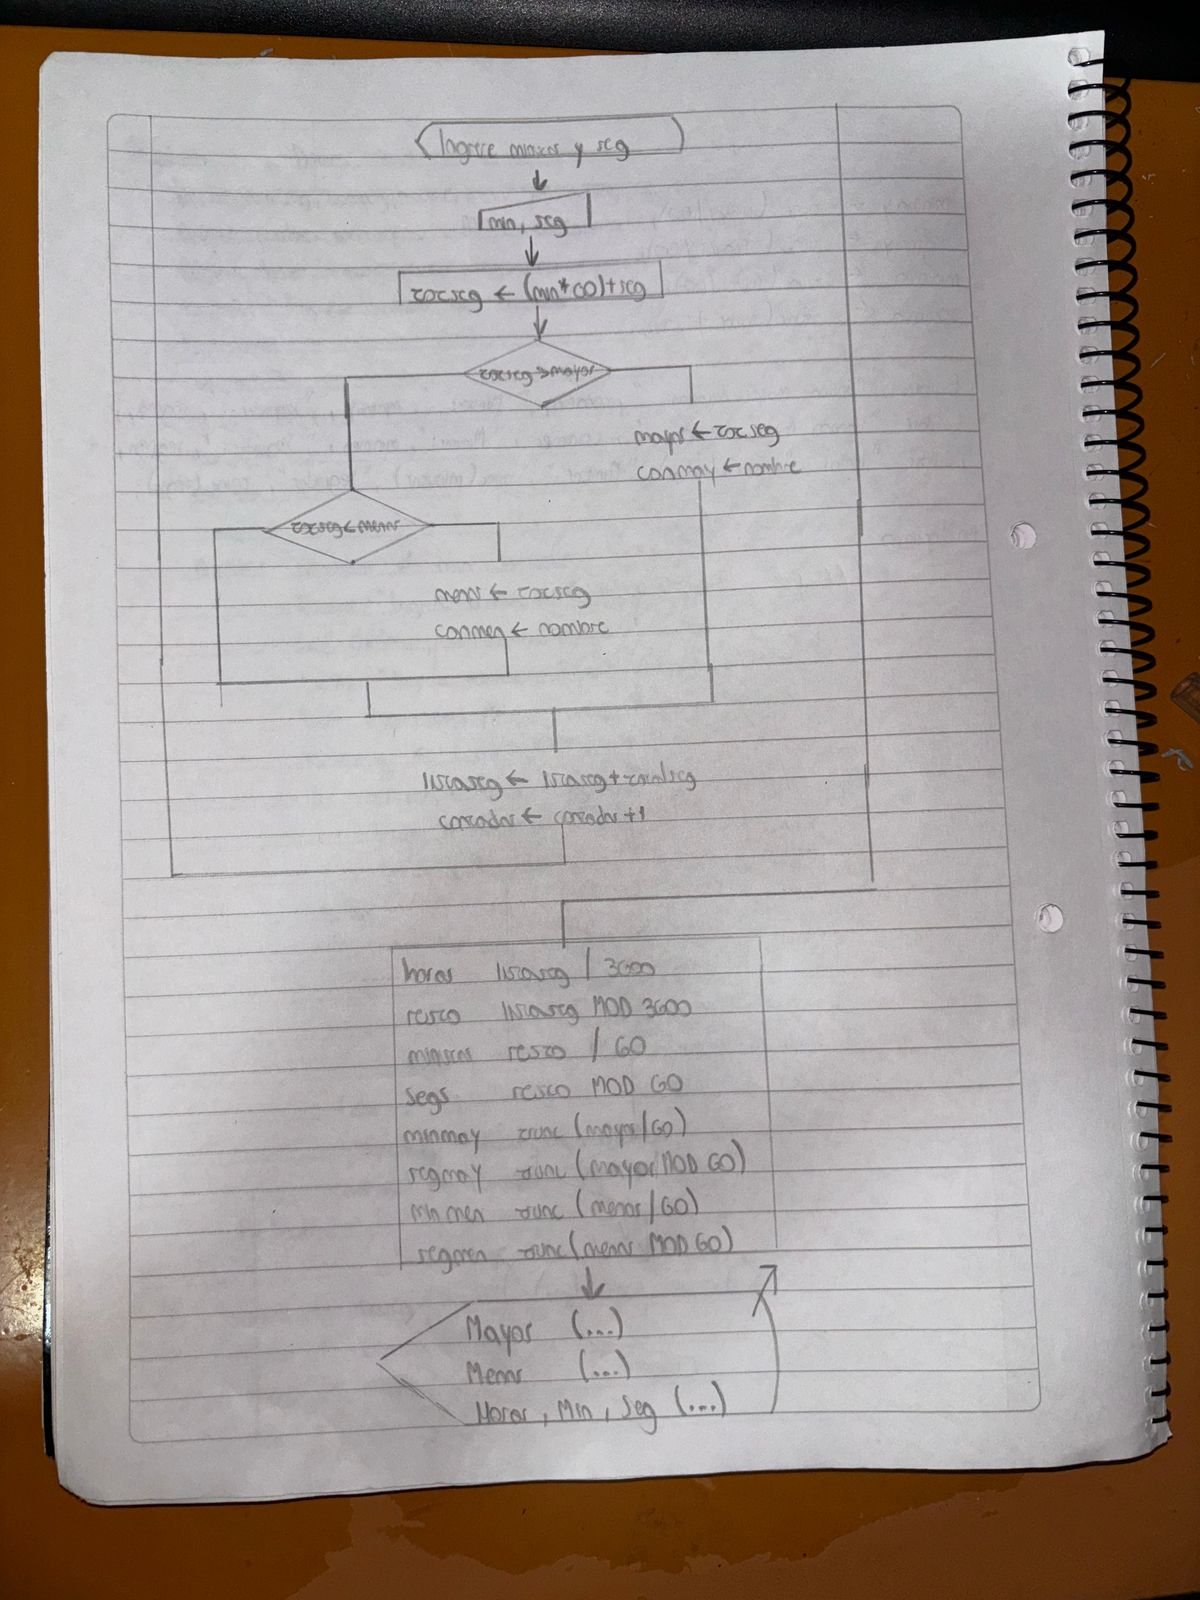 Ingrese minutos y seg
min, seg
totseg ← (min*60)+seg
totseg > mayor
mayor ← totseg
conmay ← nombre
totseg < menor
menor ← totseg
conmen ← nombre
listaseg ← listaseg + totalseg
contador ← contador + 1
horas listaseg / 3600
resto listaseg MOD 3600
minutos resto / 60
segs resto MOD 60
minmay trunc (mayor/60)
segmay trunc (mayor MOD 60)
min men trunc (menor/60)
segmen trunc (menor MOD 60)
Mayor (...)
Menor (...)
Horas, Min, Seg (...)